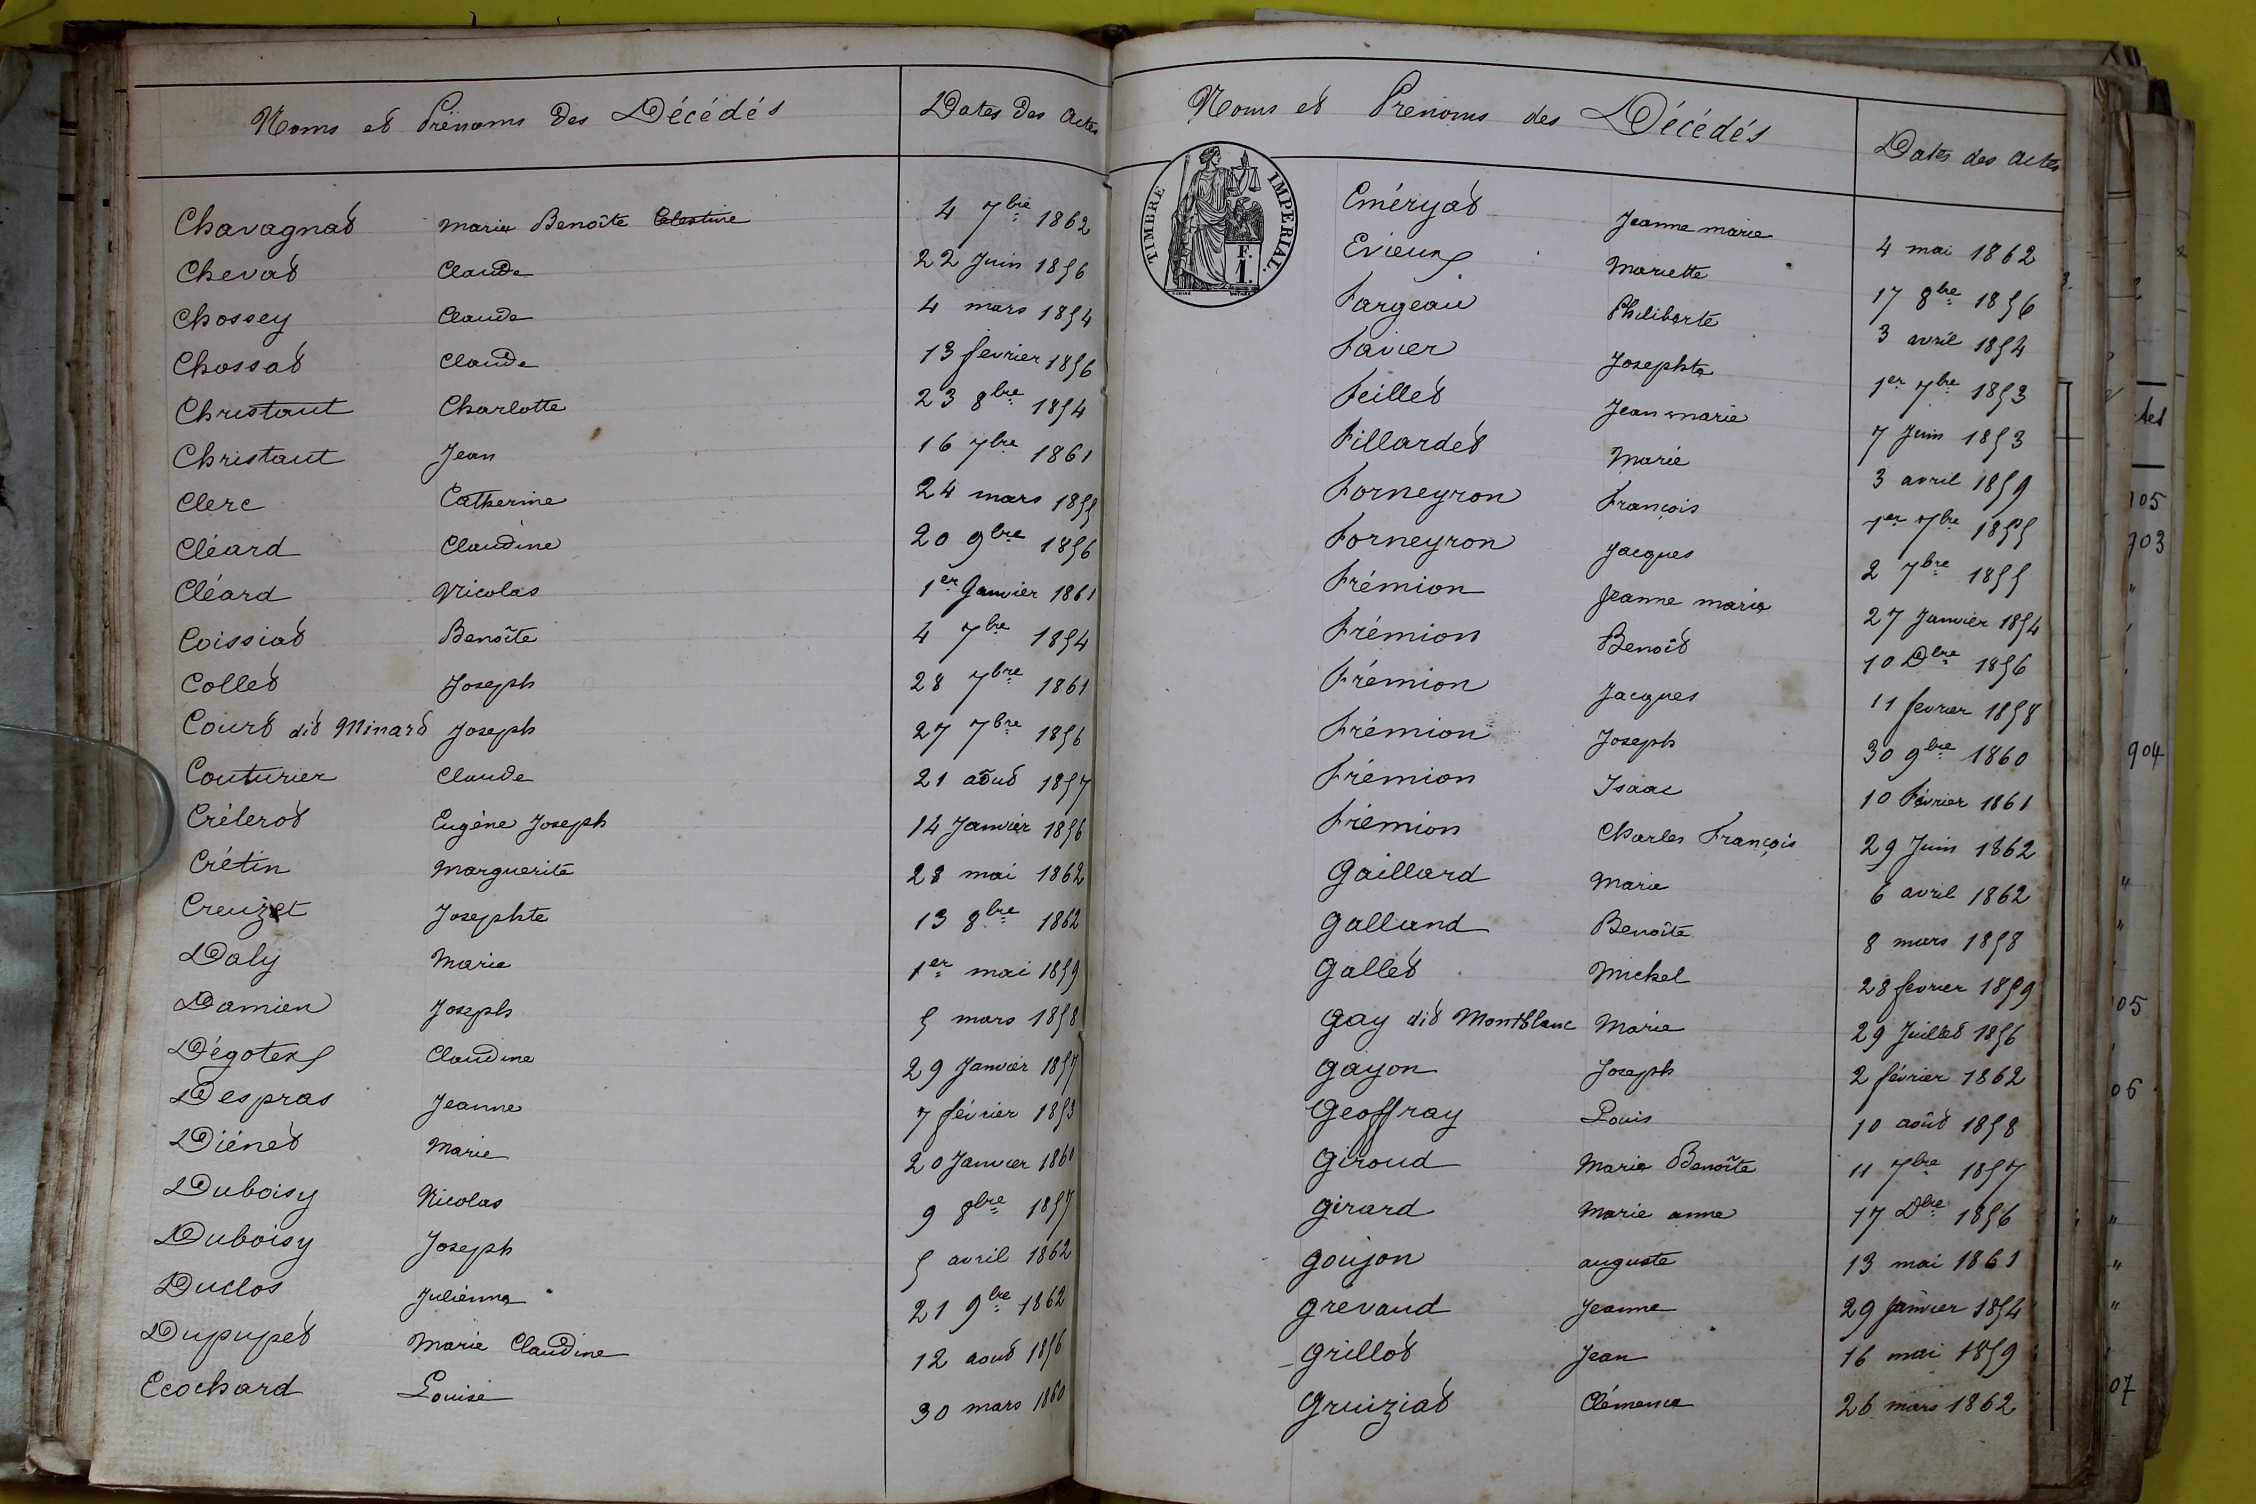 Noms et Prénoms des Décédés Dates des Actes
Chavagnat Marie Benoîte Celestine 4 7bre 1862
Chevat Claude 22 Juin 1856
Chossey Claude 4 mars 1854
Chossat Claude 13 fevrier 1856
Christaut Charlotte 23 8bre 1854
Christaut Jean 16 7bre 1861
Clerc Catherine 24 mars 1855
Cléard Claudine 20 9bre 1856
Cléard Nicolas 1er Janvier 1861
Coissiat Benoîte 4 7bre 1854
Collet Joseph 28 7bre 1861
Court dit Minard Joseph 27 7bre 1856
Couturier Claude 21 août 1857
Crélerot Eugène Joseph 14 Janvier 1856
Crétin Marguerite 28 mai 1862
Creuzet Josephte 13 8bre 1862
Daly Marie 1er mai 1859
Damien Joseph 5 mars 1858
Dégotex Claudine 29 Janvier 1857
Despras Jeanne 7 février 1853
Diénet Marie 20 Janvier 1860
Duboisy Nicolas 9 8bre 1857
Duboisy Joseph 5 avril 1862
Duclos Julienne 21 9bre 1862
Dupupet Marie Claudine 12 aout 1856
Ecochard Louise 30 mars 1860
Noms et Prenoms des Décédés Dates des actes
TIMBRE IMPERIAL.
F.
1.
Eméryat Jeanne marie 4 mai 1862
Evieux Mariette 17 8bre 1856
Fargeau Philiberte 3 avril 1854
Favier Josephte 1er 7bre 1853
Feillet Jean marie 7 Juin 1853
Fillardet Marie 3 avril 1859
Forneyron François 1er 7bre 1855
Forneyron Jacques 2 7bre 1855
Frémion Jeanne marie 27 Janvier 1854
Frémion Benoît 10 Dbre 1856
Frémion Jacques 11 fevrier 1858
Frémion Joseph 30 9bre 1860
Frémion Isaac 10 Février 1861
Frémion Charles François 29 Juin 1862
Gaillard Marie 6 avril 1862
Galland Benoîte 8 mars 1858
Gallet Michel 28 fevrier 1859
Gay dit Montblanc Marie 29 Juillet 1856
Gayon Joseph 2 février 1862
Geoffray Louis 10 août 1858
Giroud Marie Benoîte 11 7bre 1857
Girard Marie anne 17 Dbre 1856
Goujon auguste 13 mai 1861
Grévaud Jeanne 29 Janvier 1854
Grillot Jean 16 mai 1859
Gruiziat Clémence 26 mars 1862
105
903
904
05
06
07